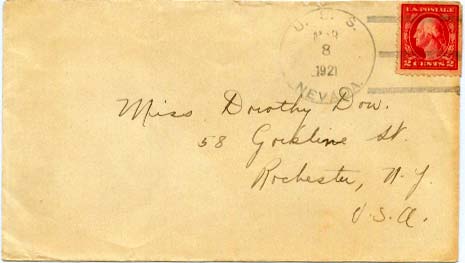 U.S.S.
MAR
8
1921
NEVADA.
U.S. POSTAGE
2 CENTS 2
Miss Dorothy Dow.
58 Gorsline St.
Rochester, N.Y.
U.S.A.